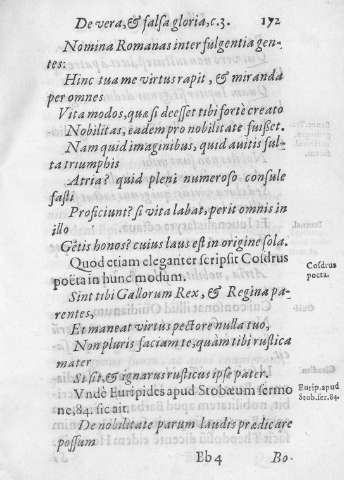 De vera, & falsa gloria, c.3. 172
Nomina Romanas inter fulgentia gen-
tes:
Hinc tua me virtus rapit, & miranda
per omnes
Vita modos, qua si deesset tibi fortè creato
Nobilitas, eadem pro nobilitate fuisset.
Nam quid imaginibus, quid auitis ful-
ta triumphis
Atria? quid pleni numeroso consule
fasti
Proficiunt? si vita labat, perit omnis in
illo
Gētis honos? cuius laus est in origine sola.
Quod etiam eleganter scripsit Cosdrus
poëta in hunc modum.
Cosdrus
poeta.
Sint tibi Gallorum Rex, & Regina pa-
rentes,
Et maneat virtus pectore nulla tuo,
Non pluris faciam te, quàm tibi rustica
mater
Si sit, & ignarus rusticus ipse pater.
Vndè Euripides apud Stobæum sermo
ne, 84. sic ait,
Eurip. apud
Stob. ser. 84.
De nobilitate parum laudis prædicare
possum
Bb4 Bo-